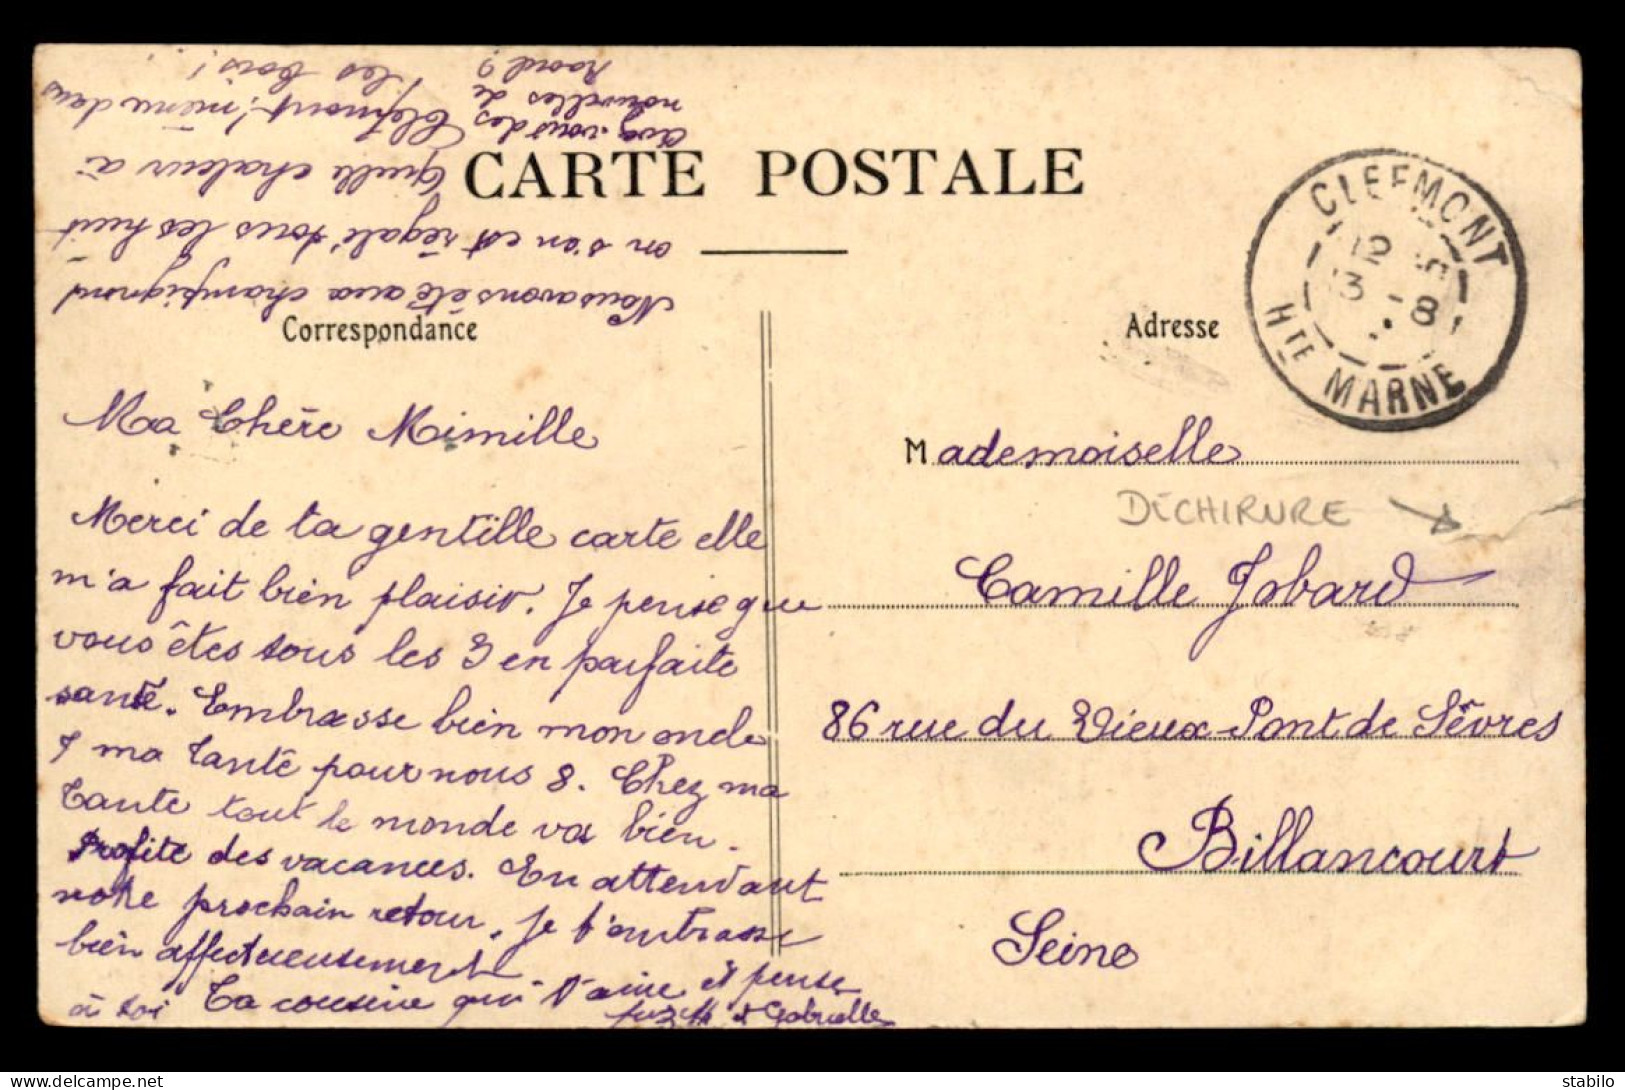 CARTE POSTALE
Correspondance
Adresse
CLEFMONT
12
13 - 8
Hte MARNE
Nous avons été aux champignons
on s'en est régalé tous les huit
Quelle chaleur à
Clefmont! même dans
les bois!
Avez-vous des
nouvelles de
Ma Chère Mimille
Merci de ta gentille carte elle
m'a fait bien plaisir. Je pense que
vous êtes tous les 3 en parfaite
santé. Embrasse bien mon oncle
& ma Tante pour nous 8. Chez ma
Tante tout le monde va bien.
Profite des vacances. En attendant
notre prochain retour, je t'embrasse
bien affectueusement
Ta cousine qui t'aime et pense
à toi
Suzette et Gabrielle
Mademoiselle
DÉCHIRURE
Camille Jobard
86 rue du Vieux Pont de Sèvres
Billancourt
Seine
delcampe.net
stabilo